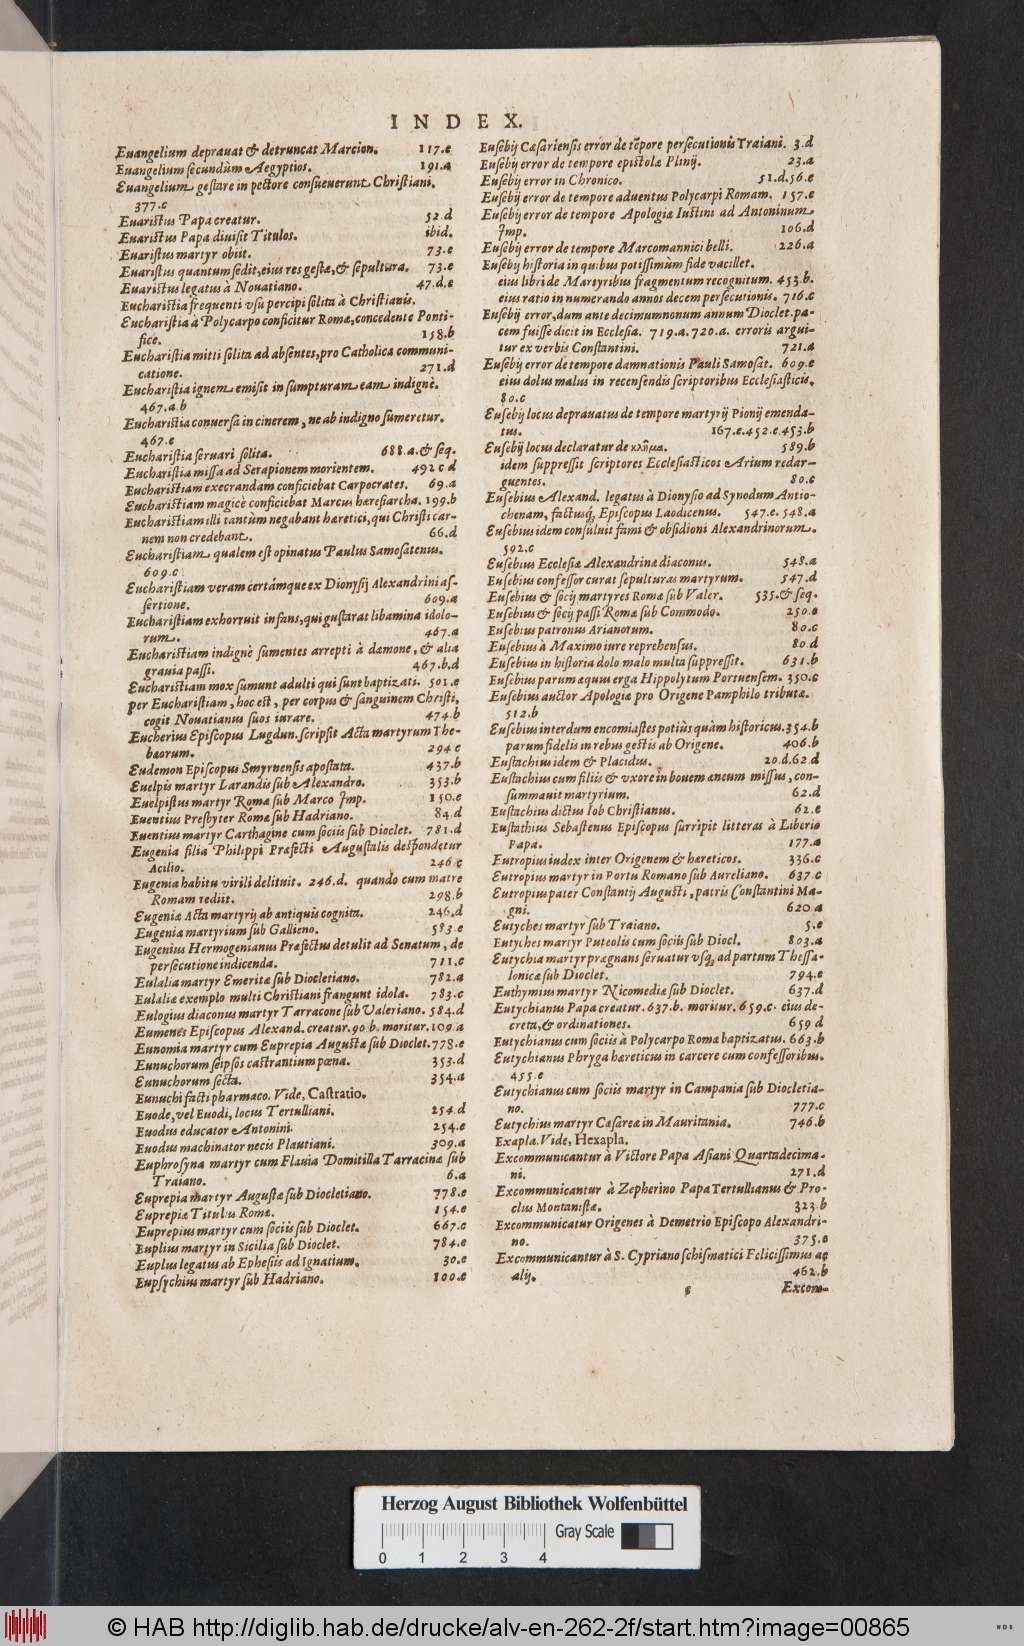 INDEX.
Euangelium deprauat & detruncat Marcion. 117.e
Euangelium secundùm Aegyptios. 191.a
Euangelium gestare in pectore consueuerunt Christiani.
377.c
Euaristus Papa creatur. 52.d
Euaristus Papa diuisit Titulos. ibid.
Euaristus martyr obiit. 73.e
Euaristus quantum sedit, eius res gestæ, & sepultura. 73.e
Euaristus legatus à Nouatiano. 47.d.e
Eucharistia frequenti vsu percipi solita à Christianis.
Eucharistia à Polycarpo conficitur Romæ, concedente Ponti-
fice. 158.b
Eucharistia mitti solita ad absentes, pro Catholica communi-
catione. 271.d
Eucharistia ignem emisit in sumpturam eam indignè.
467.a.b
Eucharistia conuersa in cinerem, ne ab indigno sumeretur.
467.e
Eucharistia seruari solita. 688.a.& seq.
Eucharistia missa ad Serapionem morientem. 492 c d
Eucharistiam execrandam conficiebat Carpocrates. 69.a
Eucharistiam magicè conficiebat Marcus hæresiarcha. 199.b
Eucharistiam illi tantùm negabant hæretici, qui Christi car-
nem non credebant. 66.d
Eucharistiam qualem est opinatus Paulus Samosatenus.
609.c
Eucharistiam veram certámque ex Dionysij Alexandrini as-
sertione. 609.a
Eucharistiam exhorruit infans, qui gustarat libamina idolo-
rum. 467.a
Eucharistiam indignè sumentes arrepti à dæmone, & alia
grauia passi. 467.b.d
Eucharistiam mox sumunt adulti qui sunt baptizati. 501.e
per Eucharistiam, hoc est, per corpus & sanguinem Christi,
cogit Nouatianus suos iurare. 474.b
Eucherius Episcopus Lugdun. scripsit Acta martyrum The-
bæorum. 294 c
Eudemon Episcopus Smyrnensis apostata. 437.b
Euelpis martyr Larandis sub Alexandro. 353.b
Euelpistus martyr Romæ sub Marco Imp. 150.e
Euentius Presbyter Romæ sub Hadriano. 84.d
Euentius martyr Carthagine cum sociis sub Dioclet. 781.d
Eugenia filia Philippi Præfecti Augustalis despondetur
Acilio. 246 c
Eugenia habitu virili delituit. 246.d. quando cum matre
Romam rediit. 298.b
Eugeniæ Acta martyrij ab antiquis cognita. 246.d
Eugenia martyrium sub Gallieno. 583.e
Eugenius Hermogenianus Præfectus detulit ad Senatum, de
persecutione indicenda. 711.c
Eulalia martyr Emeritæ sub Diocletiano. 782.a
Eulaliæ exemplo multi Christiani frangunt idola. 783.c
Eulogius diaconus martyr Tarracone sub Valeriano. 584.d
Eumenes Episcopus Alexand. creatur.90 b. moritur.109.a
Eunomia martyr cum Euprepia Augustæ sub Dioclet. 778.e
Eunuchorum seipsos castrantium pœna. 353.d
Eunuchorum secta. 354.a
Eunuchi facti pharmaco. Vide, Castratio.
Euode, vel Euodi, locus Tertulliani. 254.d
Euodus educator Antonini. 254.e
Euodus machinator necis Plautiani. 309.a
Euphrosyna martyr cum Flauia Domitilla Tarracinæ sub
Traiano. 6.a
Euprepia martyr Augustæ sub Diocletiano. 778.e
Euprepiæ Titulus Romæ. 154.e
Euprepius martyr cum sociis sub Dioclet. 667.c
Euplius martyr in Sicilia sub Dioclet. 784.e
Euplus legatus ab Ephesiis ad Ignatium. 30.e
Eupsychius martyr sub Hadriano. 100.e
Eusebij Cæsariensis error de tēpore persecutionis Traiani. 3.d
Eusebij error de tempore epistolæ Plinij. 23.a
Eusebij error in Chronico. 51.d.56.e
Eusebij error de tempore aduentus Polycarpi Romam. 157.e
Eusebij error de tempore Apologiæ Iustini ad Antoninum
Imp. 106.d
Eusebij error de tempore Marcomannici belli. 226.a
Eusebij historia in quibus potissimùm fide vacillet.
eius libri de Martyribus fragmentum recognitum. 453.b.
eius ratio in numerando annos decem persecutionis. 716.c
Eusebij error, dum ante decimumnonum annum Dioclet. pa-
cem fuisse dicit in Ecclesia. 719.a.720.a. erroris argui-
tur ex verbis Constantini. 721.a
Eusebij error de tempore damnationis Pauli Samosat. 609.e
eius dolus malus in recensendis scriptoribus Ecclesiasticis.
80.c
Eusebij locus deprauatus de tempore martyrij Pionij emenda-
tus. 167.e.452.e.453.b
Eusebij locus declaratur de κλῆμα. 589.b
idem suppressit scriptores Ecclesiasticos Arium redar-
guentes. 80.c
Eusebius Alexand. legatus à Dionysio ad Synodum Antio-
chenam, factusq́, Episcopus Laodicenus. 547.e.548.a
Eusebius idem consuluit fami & obsidioni Alexandrinorum.
592.c
Eusebius Ecclesiæ Alexandrinæ diaconus. 548.a
Eusebius confessor curat sepulturas martyrum. 547.d
Eusebius & socij martyres Romæ sub Valer. 535.& seq.
Eusebius & socij passi Romæ sub Commodo. 250.e
Eusebius patronus Arianorum. 80.c
Eusebius à Maximo iure reprehensus. 80.d
Eusebius in historia dolo malo multa suppressit. 631.b
Eusebius parum æquus erga Hippolytum Portuensem. 350.c
Eusebius auctor Apologiæ pro Origene Pamphilo tributæ.
512.b
Eusebius interdum encomiastes potiùs quàm historicus. 354.b
parum fidelis in rebus gestis ab Origene. 406.b
Eustachius idem & Placidus. 20.d.62.d
Eustachius cum filiis & vxore in bouem æneum missus, con-
summauit martyrium. 62.d
Eustachius dictus Iob Christianus. 62.e
Eustathius Sebastenus Episcopus surripit litteras à Liberio
Papa. 177.a
Eutropius iudex inter Origenem & hæreticos. 336.c
Eutropius martyr in Portu Romano sub Aureliano. 637.c
Eutropius pater Constantij Augusti, patris Constantini Ma-
gni. 620.a
Eutyches martyr sub Traiano. 5.e
Eutyches martyr Puteolis cum sociis sub Diocl. 803.a
Eutychia martyr prægnans seruatur vsq́, ad partum Thessa-
lonicæ sub Dioclet. 794.e
Euthymius martyr Nicomediæ sub Dioclet. 637.d
Eutychianus Papa creatur. 637.b. moritur. 659.c. eius de-
creta, & ordinationes. 659 d
Eutychianus cum sociis à Polycarpo Romæ baptizatus. 663.b
Eutychianus Phryga hæreticus in carcere cum confessoribus.
455.e
Eutychianus cum sociis martyr in Campania sub Diocletia-
no. 777.c
Eutychius martyr Cæsareæ in Mauritania. 746.b
Exapla. Vide, Hexapla.
Excommunicantur à Victore Papa Asiani Quartadecima-
ni. 271.d
Excommunicantur à Zepherino Papa Tertullianus & Pro-
clus Montanistæ. 323.b
Excommunicatur Origenes à Demetrio Episcopo Alexandri-
no. 375.e
Excommunicantur à S. Cypriano schismatici Felicissimus ac
alij. 462.b
Excom-
Herzog August Bibliothek Wolfenbüttel
Gray Scale
0 1 2 3 4
© HAB http://diglib.hab.de/drucke/alv-en-262-2f/start.htm?image=00865